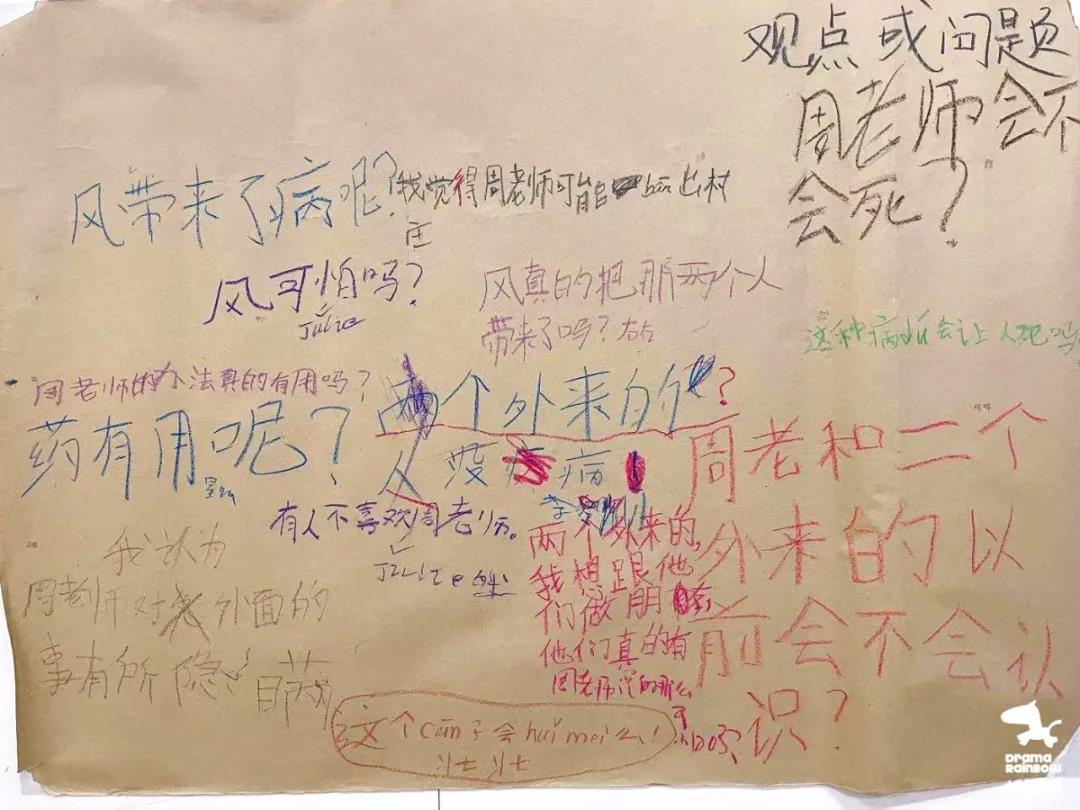 观点或问题
周老师会不
会死？
风带来了病呢？
我觉得周老师可能 bèi 出村
庄
风可怕吗？
Julie
风真的把那两个人
带来了吗？右右
这种病 会让人死吗
周老师的办法真的有用吗？
药有用呢？
两个外来的？
人疫病
有人不喜欢周老师。
周老和二个
外来的以
前会不会认
识？
两个外来的，
我想跟他
们做朋
他们真的有
周老师说的那么
可 吗
我认为
周老师对外面的
事有所隐瞒
这个cūn子会huǐ mei么！
壮壮
Drama
Rainbow